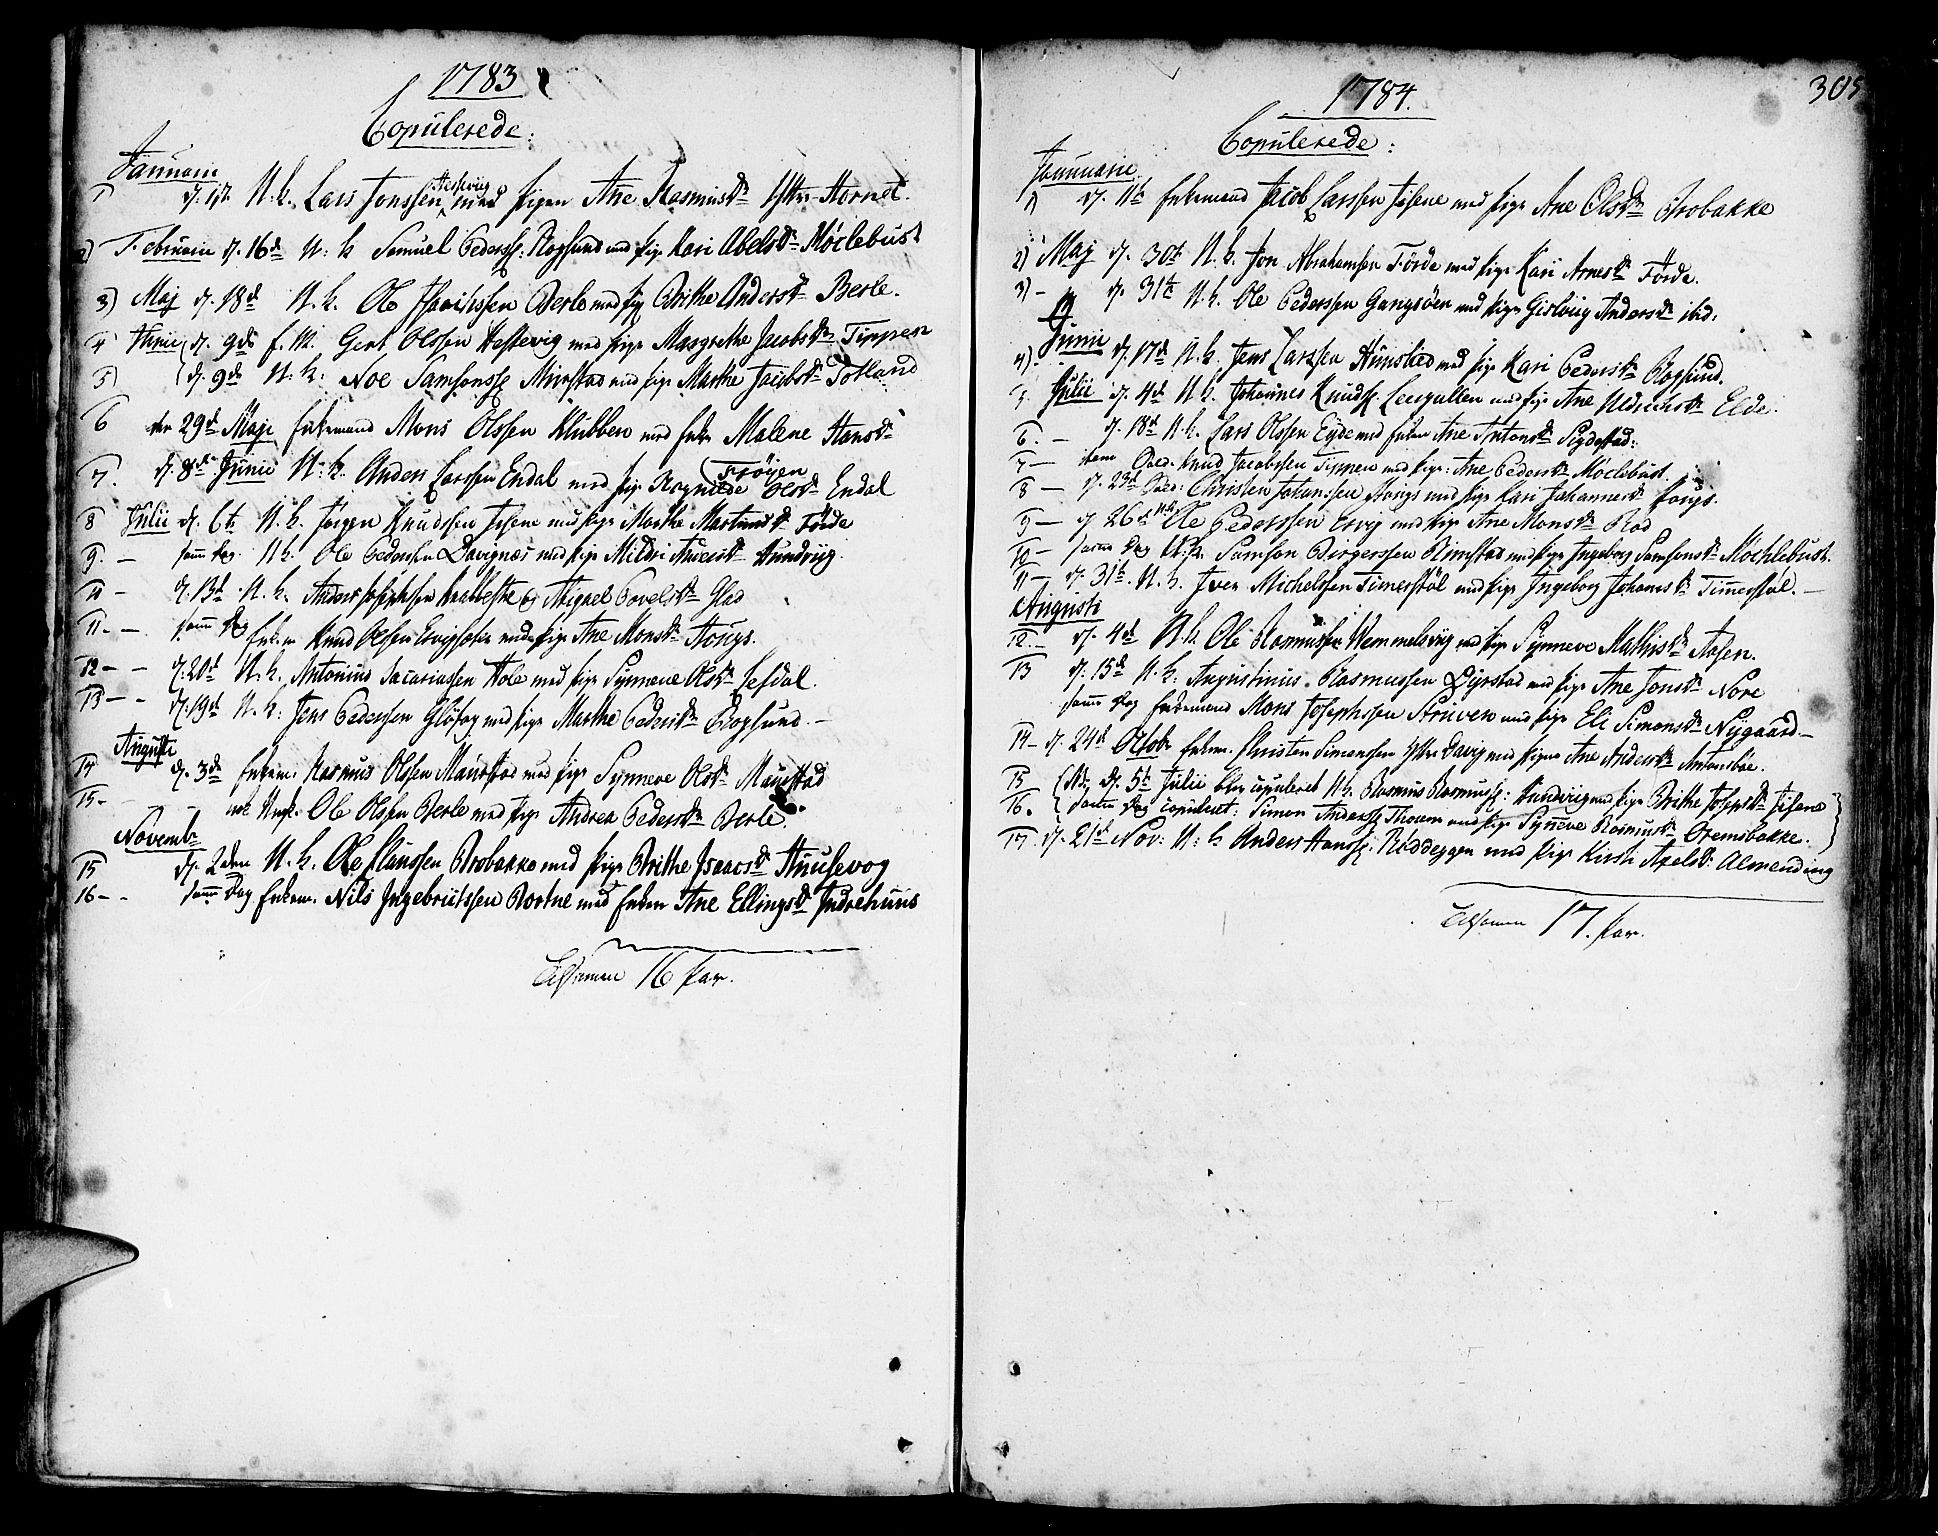 1783
Copulerede:
Januarii
1 d. 1st. U. k. Lars Jonssen Hessevig med pigen Ane Rasmusdr Ytter-Hornet.
2) Februarii d. 16d U: k Samuel Pederss: Rogsund med pige Kari Abelsdr Möclebust
3) Maj d. 18d U. k. Ole Berle med pig Brithe Andersdr Berle.
4 Junii d. 9de Gert Olssen Hestevig med pige Margrethe Jacobsdr Tippen
5) d. 9de U. k: Noe Samsonss Mürstad med pige Marthe Jacobsdr Totland
6 den 29d Maji Enkemand Mons Olssen Klubben med Enke Malene Hansdr
7. d. 8de Junii U: k. Anders Larssen Endal med pige Rognilde (Fröyen Olsdr Endal
8 Julii d. 6te U. k. Jörgen Knudssen Isene med pige Marthe Martinusdr Förde
9. - samme Dag. U k. Ole Pederssen Davignæs med pige Mildri Andersdr Hundviig.
10 - d. 13d U. k. Anders Josephssen Kalvesthe og Abigael Povelsdr Glad
11. - samme Dag Enkem Knud Olssen med pige Ane Monsdr Hougs.
12 - - d. 20d U. k. Antonius Sacariassen Hole med pige Synneve Olsdr Lefdal.
13 - - d. 19d U. k: Jens Pederssen med pige Marthe Pedersdr Rogsund. -
Augusti
14 d. 3de Enkem: Rasmus Olssen Maurstad med pige Synneve Olsdr Maurstad
15. - - - Ole Olssen Berle med pige Andrea Pedersdr Berle.
Novembr
15 d. 2den U. k. Ole Claussen Brobakke med pige Brithe Isaacsdr Huusevog
16 - - samme Dag Enkem. Nils Ingebrittssen Rortne med Enken Ane Ellingsdr Indrehuus
Tilsamen 16 par.
305
1784.
Copulerede:
Januarii
1) d. 11te Enkemand Jacob Larssen Isene med pige Ane Olsdr Brobakke
2) Maj d. 30te U. k. Jon Abrahamsen Förde med pige Kari Arnesdr Förde.
3) - d. 31te U. k. Ole Pederssen Gangsöen med pige Gislvig Andersdr ibid:
Junii
4). d. 17d U. k. Jens Larssen Hümstad med pige Kari Pedersdr Rogsund.
5. Julii d. 4d U. k. Johannes Knudss: Leegullen med pige Ane Uldrichsdr Elde.
6. - d. 18d U. k. Lars Olssen Eyde med Enken Ane Antonsdr Sigdestad:
7 - item Knud Jacobssen Tippen med pige: Ane Pedersdr Möclebust.
8 - d. 25d Christen Johanssen Hougs med pige Kari Johannesdr Hougs.
9 - d 26de Ole Pederssen Ervig med pige Ane Monsdr Rod
10 - samme Dag U. k. Samson Birgerssen Rimstad med pige Ingeborg Samsonsdr Möchlebust.
11 - d. 31te U. k. Iver Michelssen Timerstöl med pige Ingeborg Johansdr Timerstöl. -
Augusti
12. - d. 4d U. k. Ole Rasmussen Hemmelsviig med pige Synneve Mathisdr Aasen.
13 d. 15de U. k: Augustinus Rasmussen Dyrstad med pige Ane Jonsdr Nore
samme Dag Enkemand Mons Josephssen Struven med pige Eli Simonsdr Nygaard. -
14 - d. 24d Octobr Enkem. Christen Simonssen Ytter Davig med pigen Ane Andersdr Antonsböe.
15 (NB. d. 5te Julii blev copuleret U. k. Rasmus Rasmuss: Hundviig med pige Brithe Josephsdr Isene
16. samme Dag copuleret: Simon Anderss Thoum med pige Synneve Rasmusdr Oremsbakke.
17. d. 21d Nov: U: k Anders Hanss: Röddeggen med pige Kirsti Axelsdr Almending
Tilsamen 17. par.